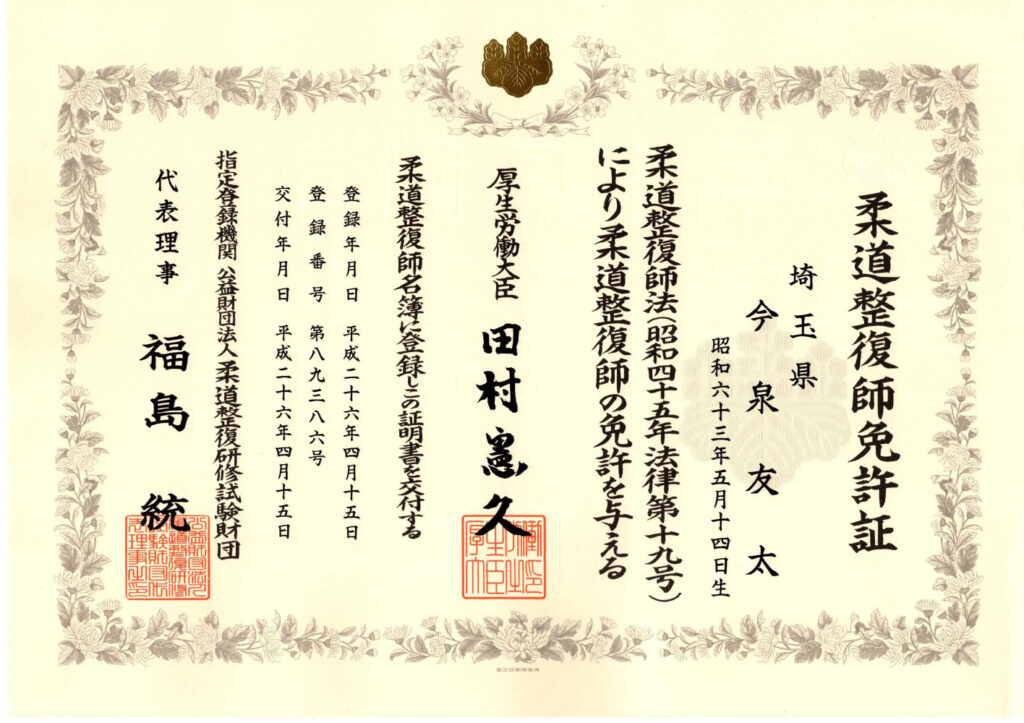 柔道整復師免許証
埼玉県
今泉友太
昭和六十三年五月十四日生
柔道整復師法(昭和四十五年法律第十九号)
により柔道整復師の免許を与える
厚生労働大臣 田村憲久
柔道整復師名簿に登録しこの証明書を交付する
登録年月日 平成二十六年四月十五日
登録番号 第八九三八六号
交付年月日 平成二十六年四月十五日
指定登録機関 公益財団法人 柔道整復研修試験財団
代表理事 福島統